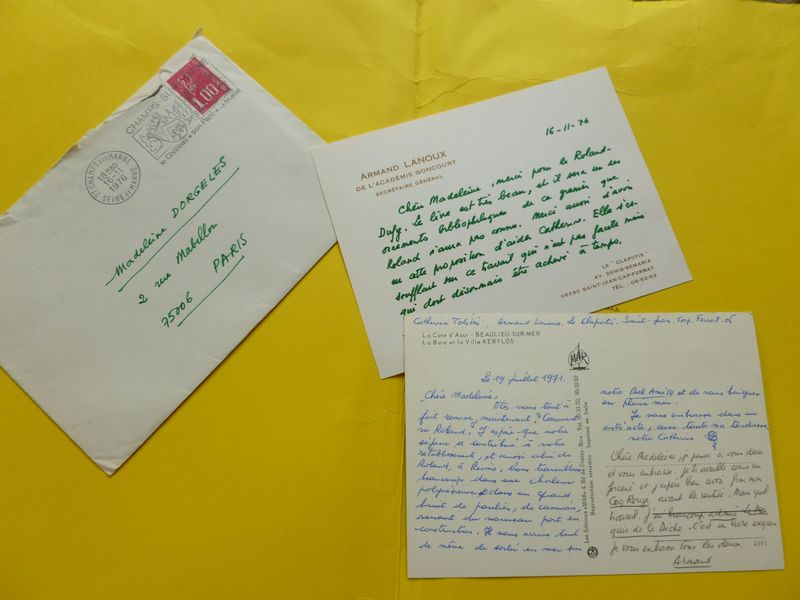 CHAMPS-SU
1.00
le Château • son Parc • sa Mairie
77 CHAMPS SUR MARNE
18H30
16-11
1976
SEINE ET MARNE
Madeleine DORGELES
2 rue Mabillon
75006 PARIS
16-11-76
ARMAND LANOUX
DE L'ACADÉMIE GONCOURT
SECRÉTAIRE GÉNÉRAL
Chère Madeleine, merci pour le Roland-
Dufy. Le livre est très beau, et il sera un des
ornements bibliophiliques de ce grenier que
Roland n'aura pas connu. Merci aussi d'avoir
proposition d'aider Catherine. Elle s'es-
soufflait sur ce travail qui n'est pas facile mais
qui doit désormais être achevé à temps.
LE "CLAPOTIS"
AV. DENIS-SEMARIA
06290 SAINT-JEAN-CAP-FERRAT
TÉL.
Catherine Tolstoï. Armand Lanoux, Le Clapotis, Saint-Jean. Cap. Ferrat. 06
La Côte d'Azur - BEAULIEU-SUR-MER
La Baie et la Ville KERYLOS
MAR
Le 19 juillet 1971.
Chère Madeleine,
Etes-vous tout à
fait remise, maintenant? Comment
va Roland? J'espère que notre
séjour a contribué à votre
rétablissement, et aussi celui de
Roland, à Reims. Nous travaillons
beaucoup dans une chaleur
polynésienne et dans un grand
bruit de de camions,
venant du nouveau port en
construction. Il nous arrive tout
de même de sortir en mer sur
notre Bel Ami III et de nous baigner
en pleine mer.
Je vous embrasse
avec toute ma tendresse,
votre Catherine
Chère Madeleine, je pense à vous deux
et vous embrasse. Je travaille comme un
forcené et j'espère bien avoir fini mon
Coq Rouge avant la rentrée. Mais quel
travail.
C'est un livre
Je vous embrasse tous les deux.
Armand